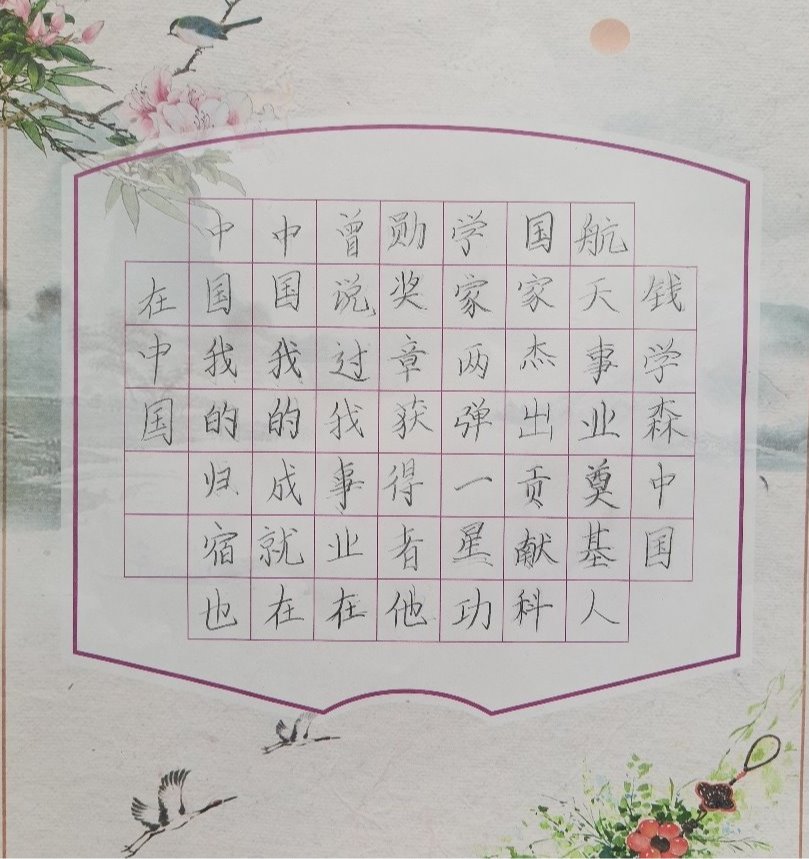 钱学森中国
航天事业奠基人
国家杰出贡献科
学家两弹一星功
勋奖章获得者他
曾说过我事业在
中国我的成就在
中国我的归宿也
在中国